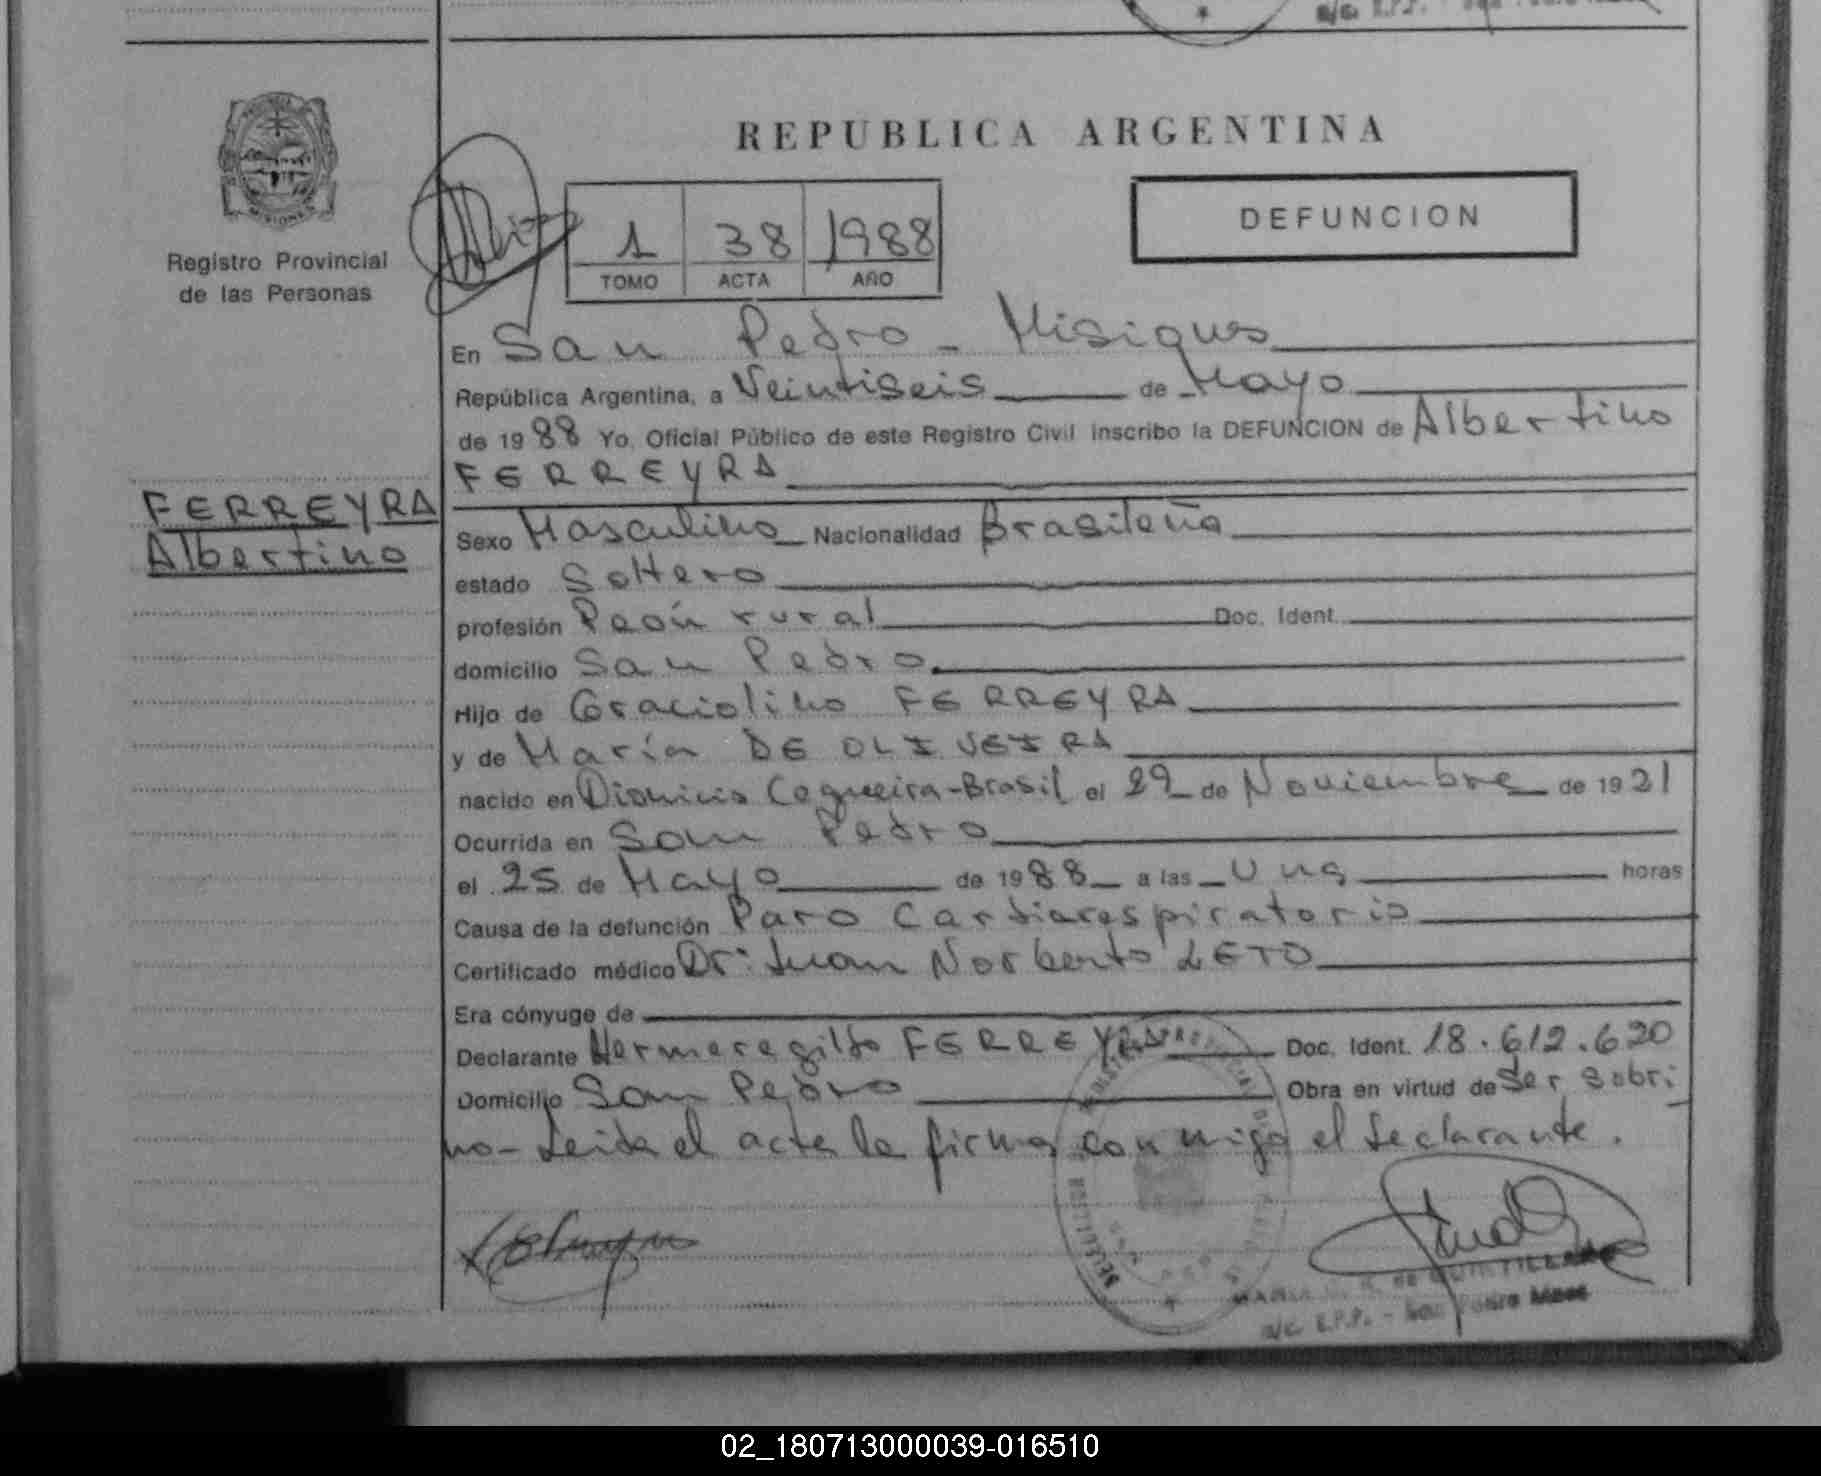 REPUBLICA ARGENTINA
MISIONES
Registro Provincial
de las Personas
1 38 1988
TOMO ACTA AÑO
DEFUNCION
En San Pedro - Misiones
República Argentina, a Veintiseis de Mayo
de 1988 Yo, Oficial Público de este Registro Civil inscribo la DEFUNCION de Albertino
FERREYRA
FERREYRA
Albertino
Sexo Masculino Nacionalidad Brasileña
estado Soltero
profesión Peón rural Doc. Ident.
domicilio San Pedro
Hijo de Graciolino FERREYRA
y de María DE OLIVEIRA
nacido en Dionicio Cequeira-Brasil el 29 de Noviembre de 1921
Ocurrida en San Pedro
el 25 de Mayo de 1988 a las Una horas
Causa de la defunción Paro Cardiorespiratorio
Certificado médico Dr: Juan Norberto LETO
Era cónyuge de
Declarante Hermeregildo FERREYRA Doc. Ident. 18.612.620
Domicilio San Pedro Obra en virtud de Ser sobri
no- Leida el acta la firma conmigo el declarante.
de QUINTILLAN
a/c. R.P.P. - San Pedro Mnes
02_180713000039-016510